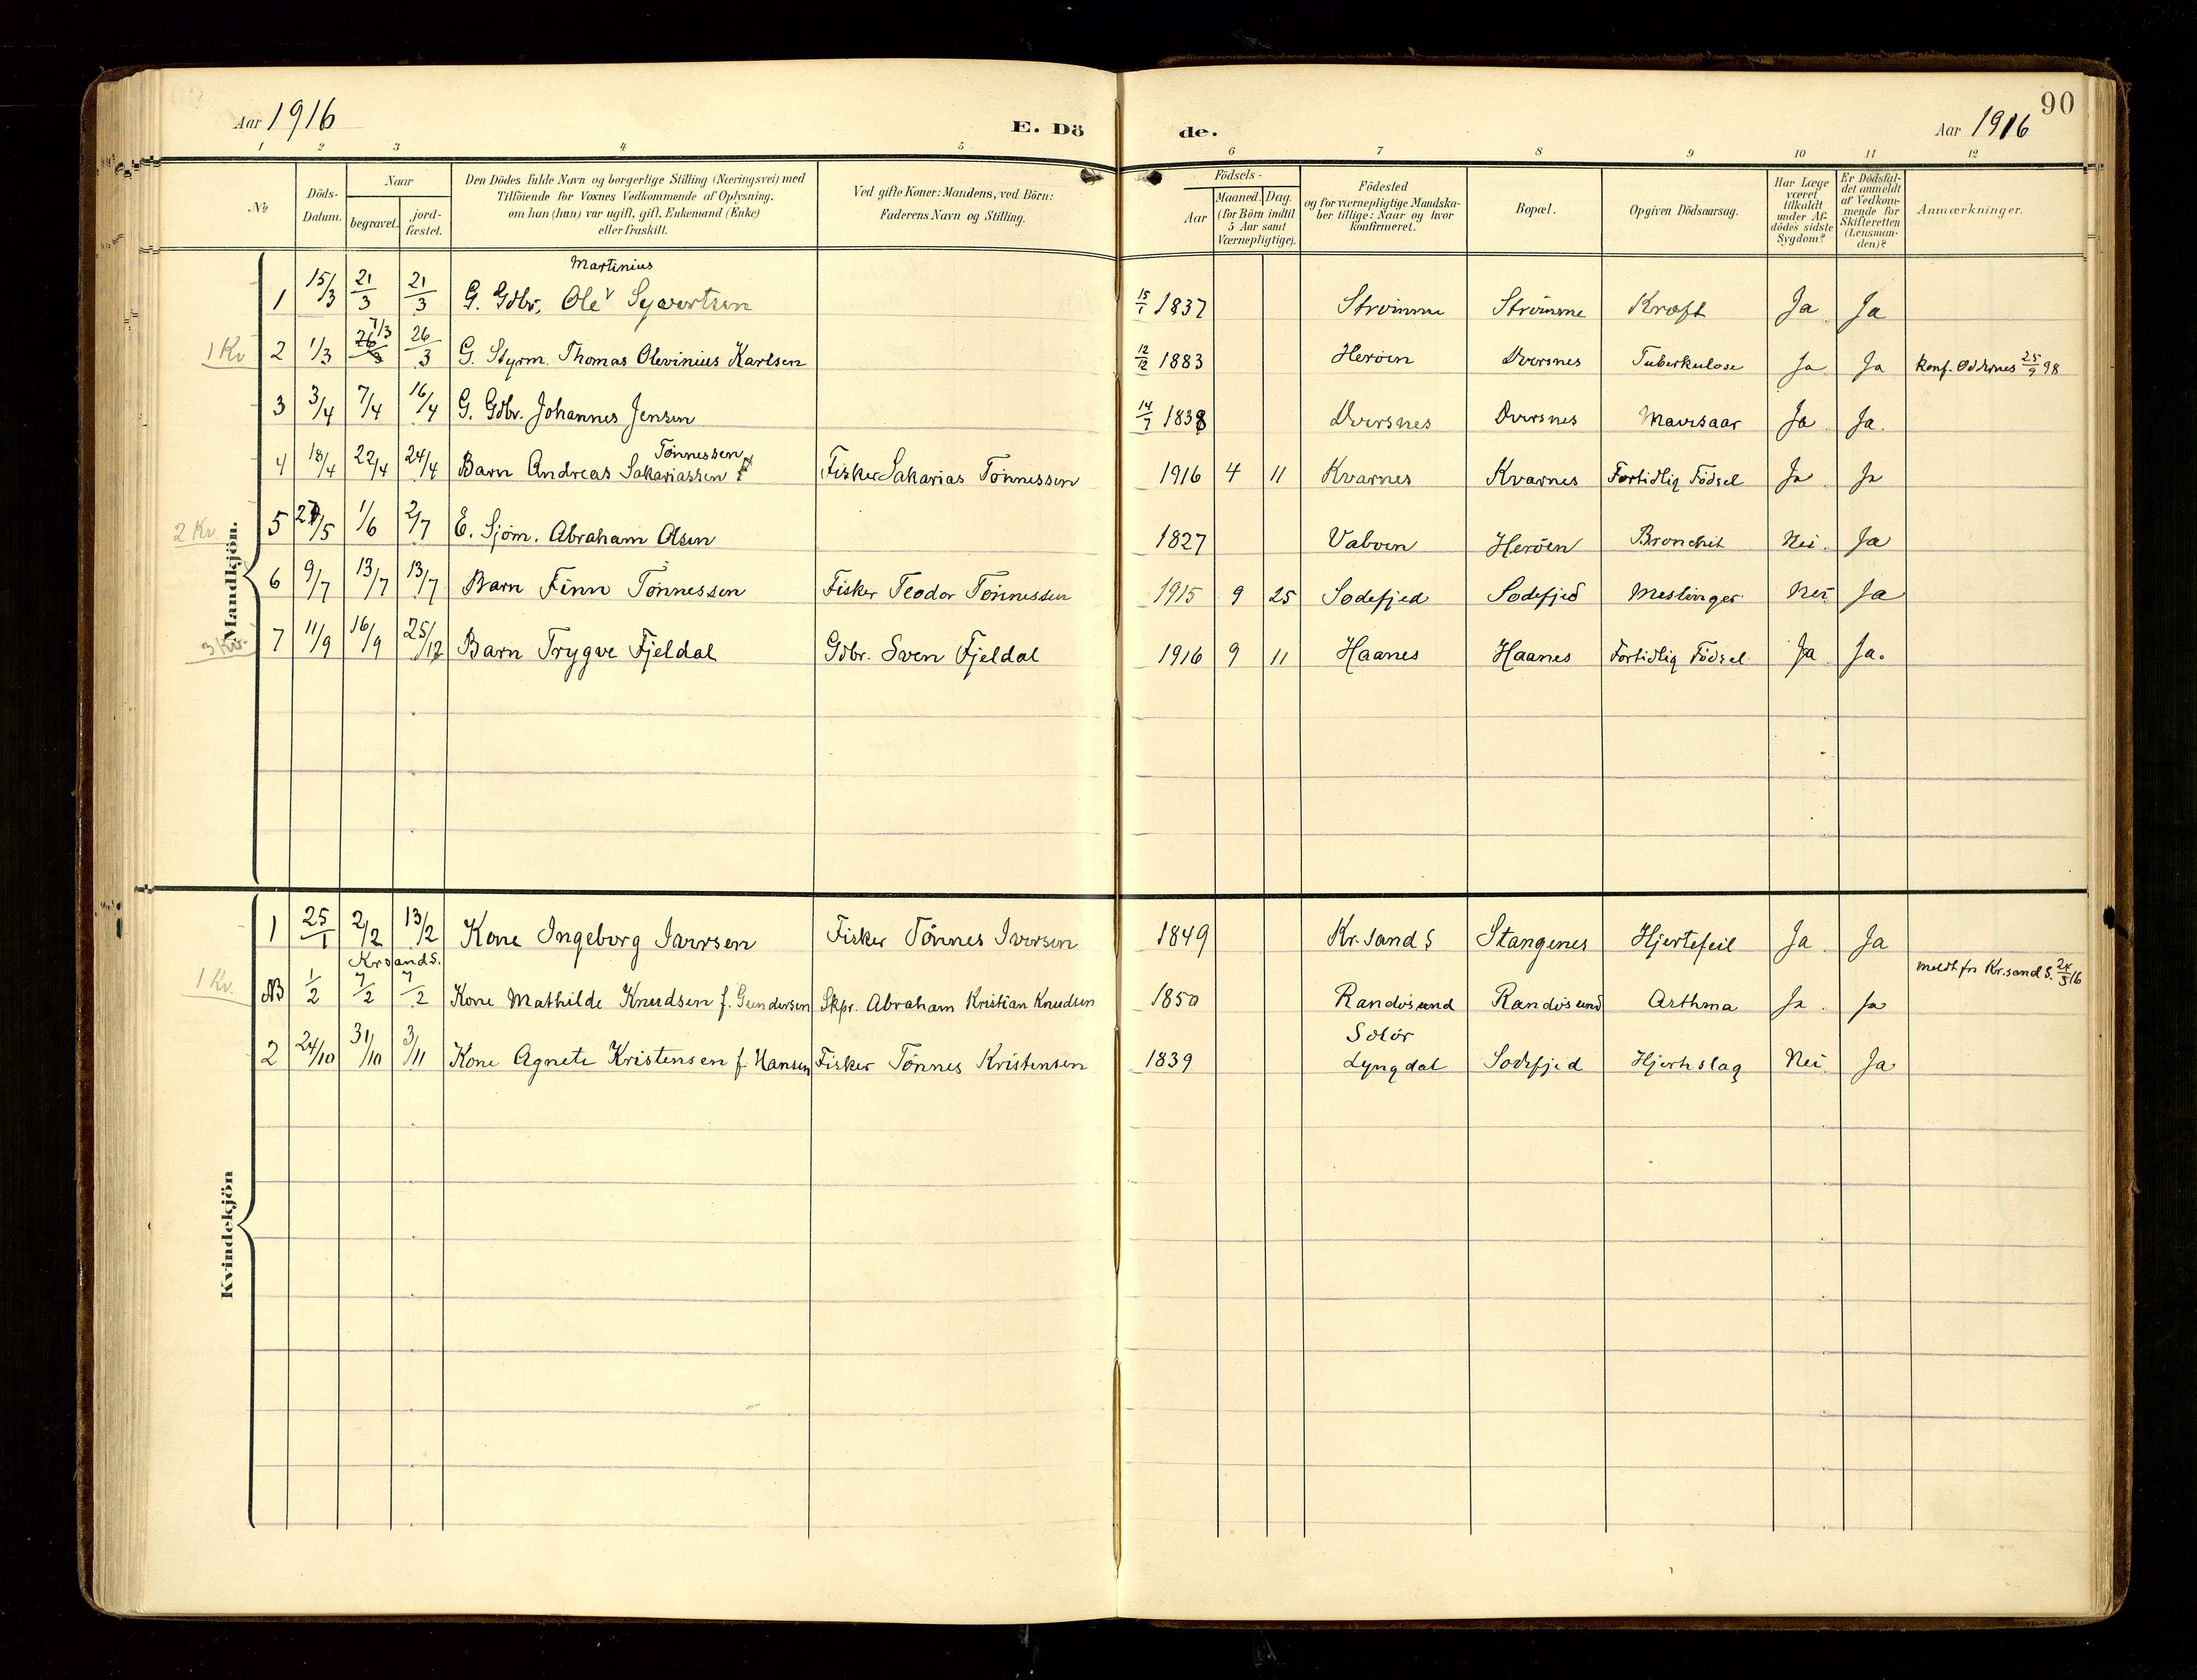 90
Aar 1916
E. Dö de.
Aar 1916
1 2 3 4 5 6 7 8 9 10 11 12
№
Döds-Datum.
Naar
begravet.
jord-fæstet.
Den Dödes fulde Navn og borgerlige Stilling (Næringsvei) med
Tilföiende for Voxnes Vedkommende af Oplysning,
om han (hun) var ugift, gift, Enkemand (Enke)
eller fraskilt.
Ved gifte Koner: Mandens, ved Börn:
Faderens Navn og Stilling.
Födsels-
Aar
Maaned. Dag.
(for Börn indtil
5 Aar samt
Værnepligtige).
Födested
og for værnepligtige Mandska-
ber tillige: Naar og hvor
konfirmeret.
Bopæl.
Opgiven Dödsaarsag.
Har Læge
været
tilkaldt
under Af-
dödes sidste
Sygdom?
Er Dödsfal-
det anmeldt
af Vedkom-
mende for
Skifteretten
(Lensman-
den)?
Anmærkninger.
Mandkjön.
Martinius
1 15/3 21/3 21/3 G. Gdbr. Ole ˅ Syvertsen 15/1 1837 Strömme Strömme Kræft Ja Ja
1 Kv
7/3
2 1/3 26/3 26/3 G. Styrm. Thomas Olevinius Karlsen 12/12 1883 Heröen Dversnes Tuberkulose Ja Ja Konf. Oddernes 25/9 98
3 3/4 7/4 16/4 G. Gdbr. Johannes Jensen 14/7 1838 Dversnes Dversnes Mavesaar Ja Ja.
Tönnessen
4 18/4 22/4 24/4 Barn Andreas Sakariassen Fisker Sakarias Tönnessen 1916 4 11 Kvarnes Kvarnes Fortidlig Födsel Ja Ja
2 Kv.
5 27/5 1/6 2/7 E. Sjöm. Abraham Olsen 1827 Vaboen Heröen Bronchit Nei. Ja
6 9/7 13/7 13/7 Barn Finn Tönnessen Fisker Teodor Tönnessen 1915 9 25 Sodefjed Sodefjed Meslinger Nei Ja
3 Kv.
7 11/9 16/9 25/12 Barn Trygve Fjeldal Gdbr. Sven Fjeldal 1916 9 11 Haanes Haanes Fortidlig Födsel Ja Ja.
Kvindekjön
1 25/1 2/2 13/2 Kone Ingeborg Iversen Fisker Tönnes Iversen 1849 Kr.sand S Stangenes Hjertefeil Ja Ja
Krsand S.
meldt fra Kr.sand S. 24/3 16
1 Kv.
NB 1/2 7/2 7/2 Kone Mathilde Knudsen f. Gundersen Skpr. Abraham Kristian Knudsen 1850 Randösund Randösund Asthma Ja Ja
Solör
2 24/10 31/10 3/11 Kone Agnete Kristensen f. Hansen Fisker Tönnes Kristensen 1839 Lyngdal Sodefjed Hjerteslag Nei. Ja